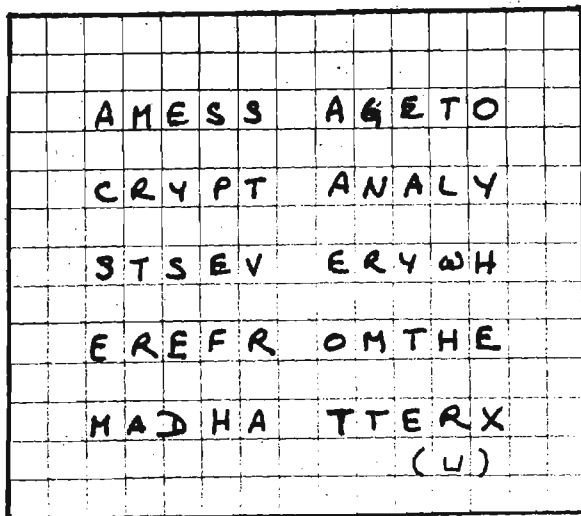 AMESS AGETO
CRYPT ANALY
STSEV ERYWH
EREFR OMTHE
MADHA TTERX
(U)